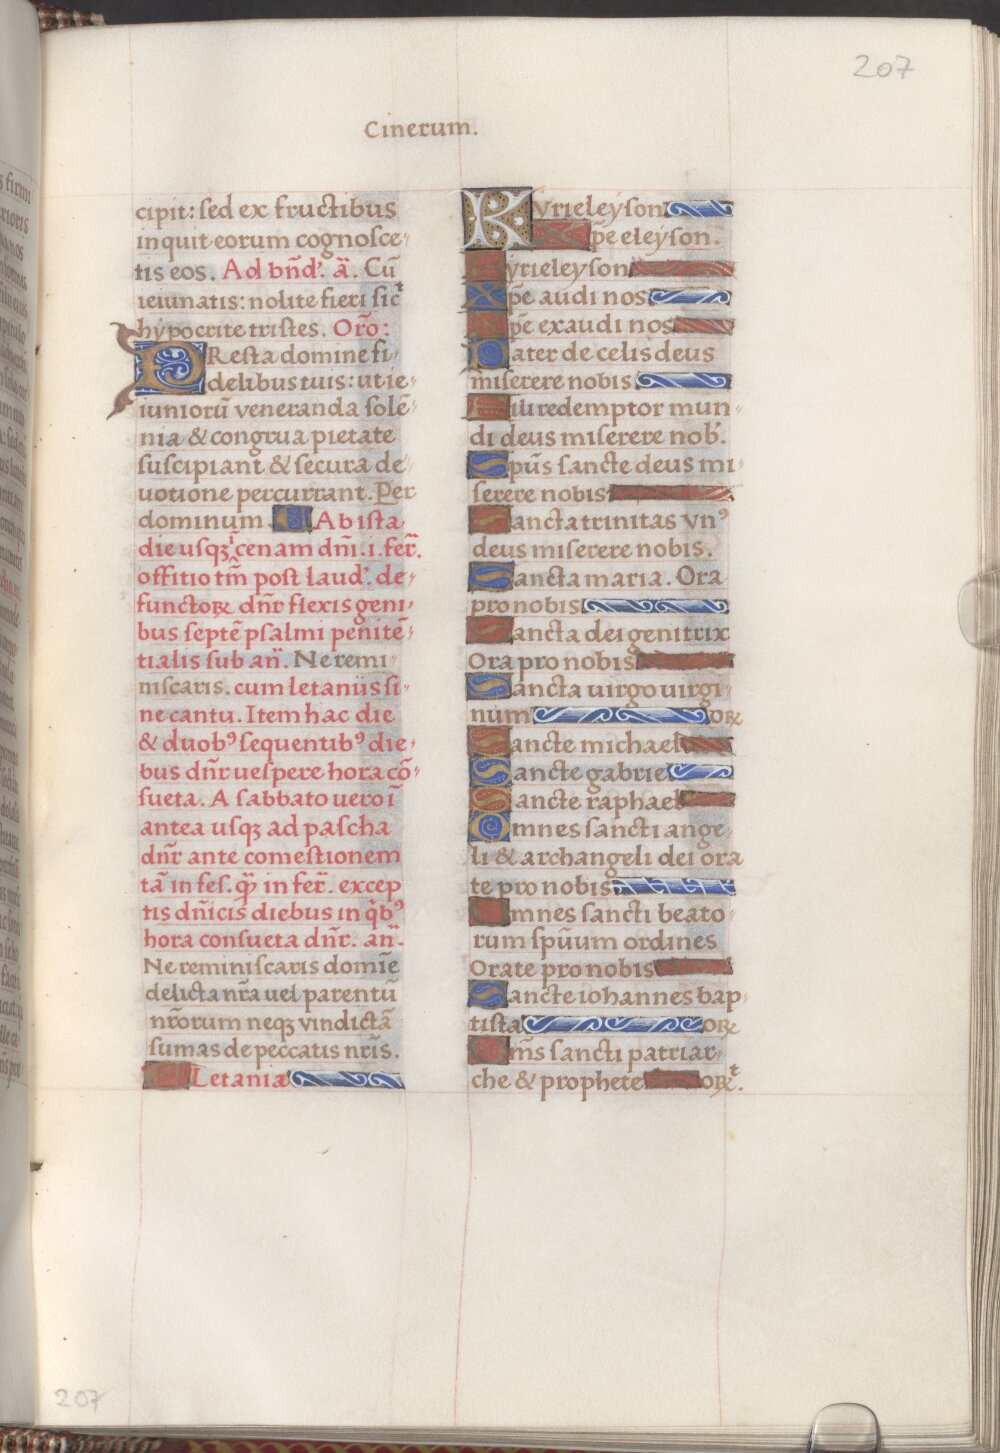 207
Cinerum.
cipit: sed ex fructibus
inquit eorum cognosce-
tis eos. Ad bñd'. ã. Cũ
ieiunatis: nolite fieri sic̃t
hypocrite tristes. Orõ:
PResta domine fi-
delibus tuis: ut ie-
iuniorũ veneranda solẽ-
nia & congrua pietate
suscipiant & secura de-
uotione percurrant. Per
dominum. Ab ista
die usqꝫ ĩ cenam dñi. i. fer̃.
offitio tm̃ post laud'. de-
functoꝝ dñr flexis geni-
bus septẽ psalmi penitẽ-
tialis sub añ. Ne remi-
niscaris. cum letaniis si-
ne cantu. Item hac die
& duobꝰ sequentibꝰ die-
bus dñr uespere hora cõ-
sueta. A sabbato uero ĩ
antea usqꝫ ad pascha
dñr ante comestionem
tã in fes. q̃ in fer̃. excep
tis dñicis diebus in q̃bꝰ
hora consueta dñr. añ.
Ne reminiscaris domĩe
delicta nr̃a uel parentũ
nr̃orum neqꝫ vindictã
sumas de peccatis nr̃is.
Letania
Kyrieleyson
Xp̃e eleyson.
Kyrieleyson
Xp̃e audi nos
Xp̃e exaudi nos
Pater de celis deus
miserere nobis
Fili redemptor mun-
di deus miserere nob'.
Spũs sancte deus mi-
serere nobis
Sancta trinitas vnꝰ
deus miserere nobis.
Sancta maria. Ora
pro nobis
Sancta dei genitrix
Ora pro nobis
Sancta uirgo uirgi-
num oꝝ
Sancte michael
Sancte gabriel
Sancte raphael
Omnes sancti ange-
li & archangeli dei ora
te pro nobis
Omnes sancti beato-
rum spũum ordines
Orate pro nobis
Sancte iohannes bap-
tista oꝝ
Om̃s sancti patriar-
che & prophete oꝝt.
207